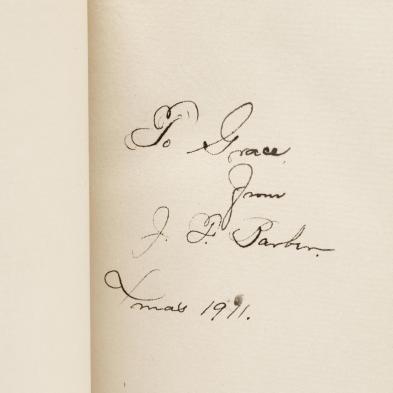 To Grace
from
J. F. Barber.
Xmas 1911.